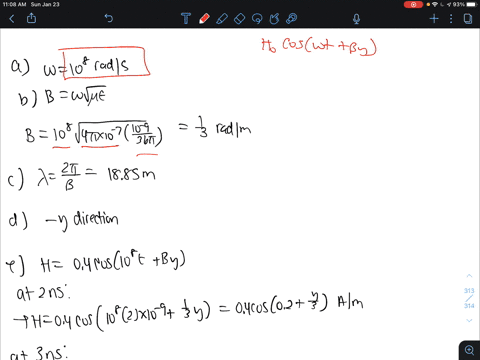 11:08 AM Sun Jan 23
93%
H₀ cos(ωt + By)
a) ω = 10⁸ rad/s
b) B = ω√με
B = 10⁸ √4π×10⁻⁷ (10⁻⁹/36π) = 1/3 rad/m
c) λ = 2π/B = 18.85m
d) -y direction
e) H = 0.4cos(10⁸t + By)
at 2ns:
→ H = 0.4cos(10⁸(2)×10⁻⁹ + 1/3 y) = 0.4cos(0.2 + y/3) A/m
at 3ns:
313
314